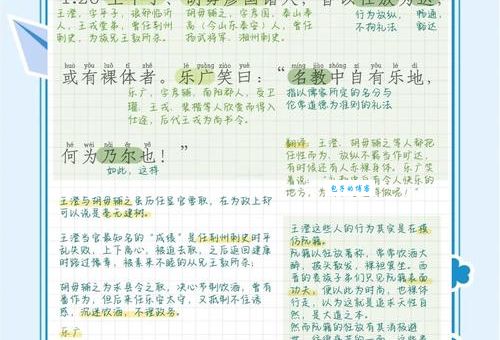 1.23 王平子、胡毋彦国诸人，皆以任放为达，
王澄，字平子，琅邪临沂
人，王戎堂弟，曾任荆州
刺史，为族兄王敦所杀。
胡毋辅之，字彦国，泰山奉
高（今山东泰安）人，曾任
扬武将军、湘州刺史。
行为放纵，
不拘礼法
畅通，
豁达
或有裸体者。乐广笑曰：“名教中自有乐地，
lè guǎng
míng jiào
乐广，字彦辅，南阳郡人，受卫
瓘、王戎、裴楷等人欣赏而得入
仕途，后代王戎为尚书令。
指以儒家所定的名分与
伦常道德为准则的礼法
何为乃尔也！”
hé wéi nǎi ěr yě
如此，这样
翻译：王澄、胡毋辅之等人都把
任性而为、放纵不羁当作旷达，
有时候还有人赤裸身体。乐广笑
着说：
有令人快乐的
地方，为
做呢！”
包子的博客
王澄与胡毋辅之虽历任显官要职，在为政上却
可以说是毫无建树。
王澄当官最知名的“成绩”是任荆州刺史时平
乱失败，上下离心，被迫去职，之后返回建康
时路过豫章，被素来不睦的从兄王敦所杀；
胡毋辅之为求县令之职，决心节制饮酒，曾有
善作为，但后来任乐安太守，又抵制不住诱
惑，沉迷饮酒，不理政务。
乐广
王澄这些人的行为其实是在模
仿阮籍。
阮籍以狂放著称，常常饮酒大
醉，披头散发，裸袒箕坐。西
晋的贵族子弟们只学阮籍表面
功夫，便以此为时尚，也裸体
行走，以为这就是追求天性自
然，是大道之本。
然而阮籍的狂放有其消极避